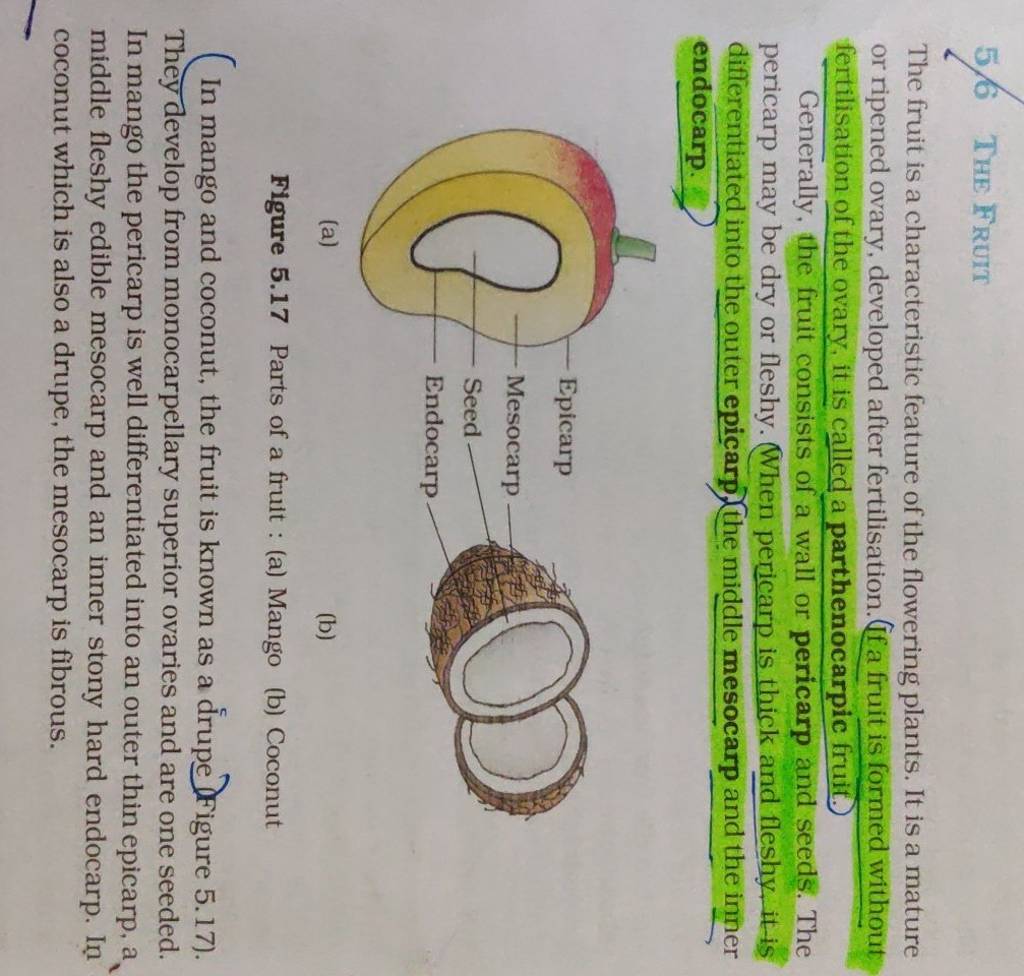 5.6 THE FRUIT
The fruit is a characteristic feature of the flowering plants. It is a mature
or ripened ovary, developed after fertilisation. If a fruit is formed without
fertilisation of the ovary, it is called a parthenocarpic fruit.
Generally, the fruit consists of a wall or pericarp and seeds. The
pericarp may be dry or fleshy. When pericarp is thick and fleshy, it is
differentiated into the outer epicarp, the middle mesocarp and the inner
endocarp.
Epicarp
Mesocarp
Seed
Endocarp
(a)
(b)
Figure 5.17 Parts of a fruit : (a) Mango (b) Coconut
In mango and coconut, the fruit is known as a drupe (Figure 5.17).
They develop from monocarpellary superior ovaries and are one seeded.
In mango the pericarp is well differentiated into an outer thin epicarp, a
middle fleshy edible mesocarp and an inner stony hard endocarp. In
coconut which is also a drupe, the mesocarp is fibrous.